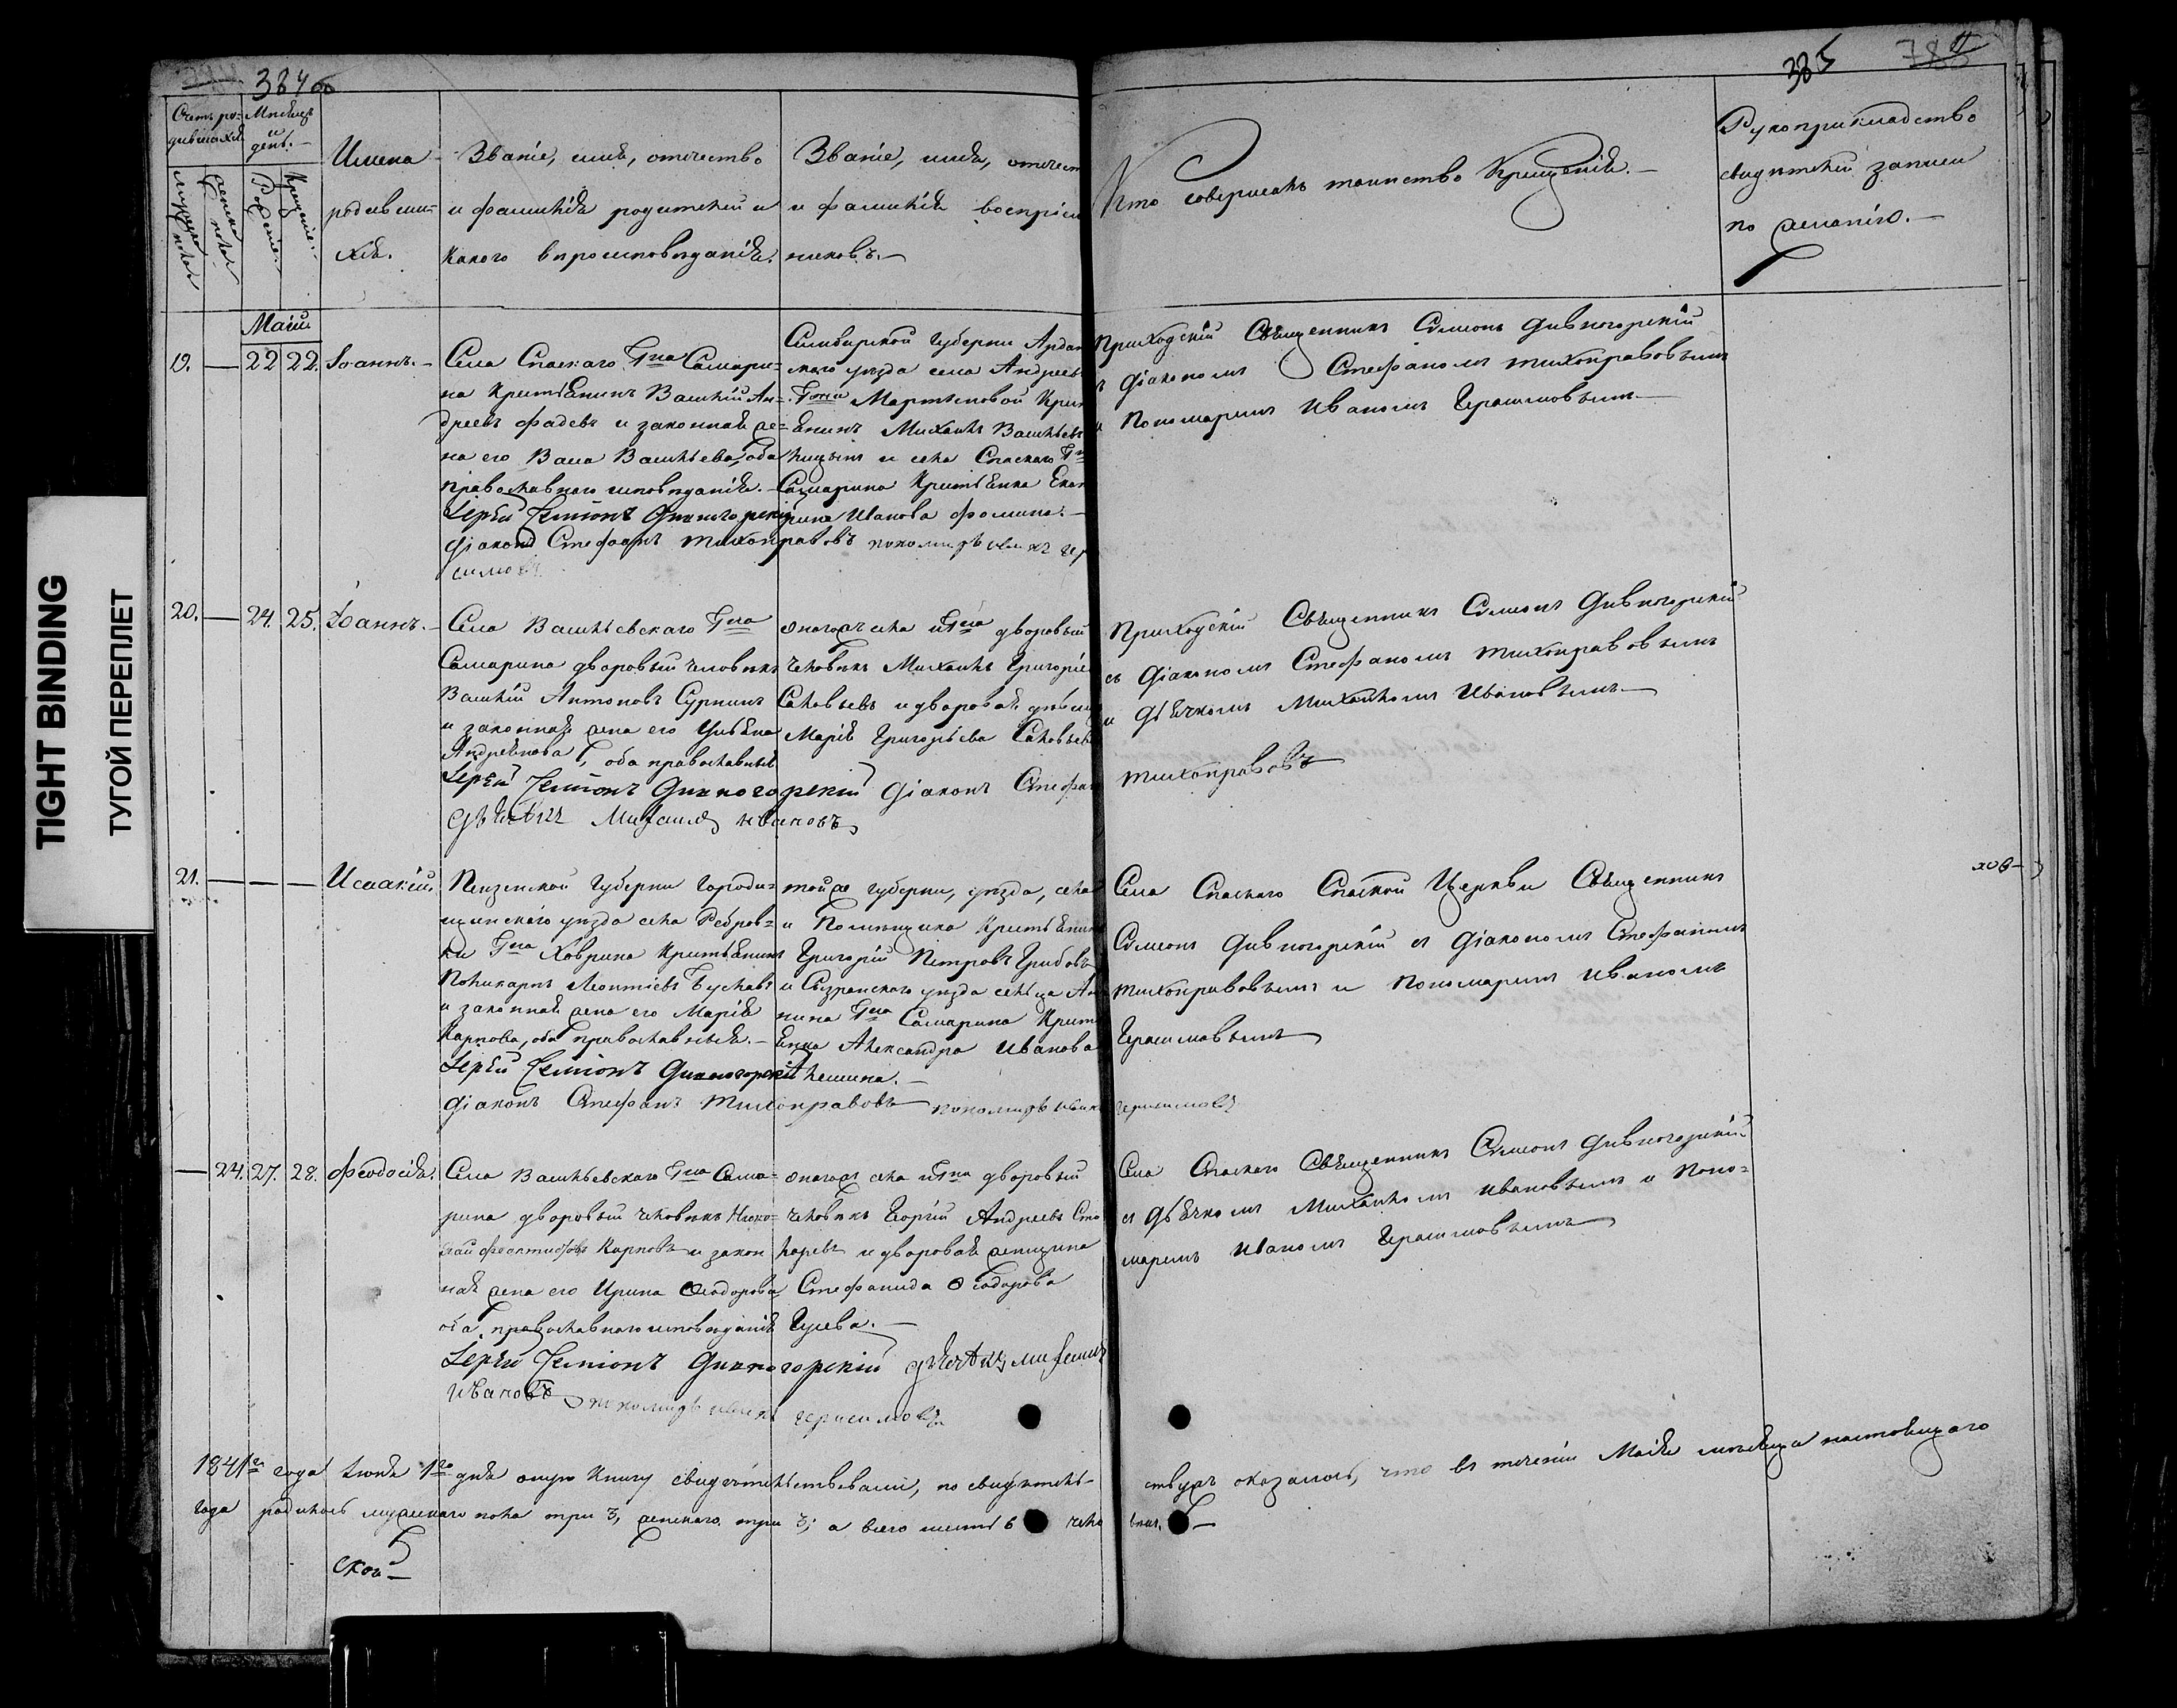 384 об
385
Счетъ ро-
дившихся
Мѣсяцъ
и
день.
мужеска
пола
женска
пола
Рожденiе.
Крещенiе.
Имена
родивши-
хся.
Званiе, имя, отчество
и фамилiя родителей и
какого вѣроисповѣданiя.
Званiе, имя, отчест
и фамилiя воспрiем
никовъ.
Кто совершалъ таинство Крещенiя.
Рукоприкладство
свидѣтелей записи
по желанiю.
Маiя
19. — 22 22. Iоаннъ.
Села Спаскаго Гна Самари-
на Крестьянинъ Василiй Ан-
дреевъ Фадѣевъ и законная же-
на его Васса Васильева, оба
православнаго исповѣданiя.
Iерей Сѵмiонъ Дивногорскiй
Дiаконъ Стефанъ Тихонравовъ пономарь Иванъ Гера
симовъ
Симбирской Губернiи Ардат
скаго уѣзда села Андреев
Гжи Мартыновой Крест
янинъ Михаилъ Васильевъ
и села Спаскаго Гна
Самарина Крестьянка Екате
рина Иванова Фомина.
Приходскiй Священникъ Сѵмеонъ Дивногорскiй
съ Дiакономъ Стефаномъ Тихонравовымъ
и Пономаремъ Иваномъ Герасимовымъ
20. — 24. 25. Iоаннъ.
Села Васильевскаго Гна
Самарина дворовый человѣкъ
Василiй Антоновъ Суринъ
и законная жена его Ульяна
Андреянова, оба православные
Iерей Сѵмiонъ Дивногорскiй Дiаконъ Стефанъ
Дьячекъ Михаилъ Ивановъ
Тихонравовъ
онагожъ села и Гна дворовый
человѣкъ Михаилъ Григорiев
Соловьевъ и дворовая дѣвица
Марiя Григорьева Соловьева
Приходскiй Священникъ Сѵмеонъ Дивногорскiй
съ Дiакономъ Стефаномъ Тихонравовымъ
и Дьячкомъ Михаиломъ Ивановымъ
21. — — — Исаакiй.
Пензенской Губернiи Городи-
щенскаго уѣзда села Ребров-
ки Гна Ховрина Крестьянинъ
Поликарпъ Леонтiевъ Буслаевъ
и законная жена его Марiя
Карпова, оба православные.
Iерей Сѵмiонъ Дивногорскiй
Дiаконъ Стефанъ Тихонравовъ пономарь Иванъ Герасимовъ
той же губернiи, уѣзда, села
и Помѣщика Крестьянинъ
Григорiй Петровъ Грибовъ
и Сызранскаго уѣзда сельца Ан
нина Гна Самарина Кресть
янка Александра Иванова
Алешина.
Села Спаскаго Спаской Церкви Священникъ
Сѵмеонъ Дивногорскiй съ Дiакономъ Стефаномъ
Тихонравовымъ и Пономаремъ Иваномъ
Герасимовымъ
ков-
— 24. 27. 28. Феодосiя.
Села Васильевскаго Гна Сама-
рина дворовый человѣкъ Нико-
лай Феоктистовъ Карповъ и закон
ная жена его Ирина Ѳеодорова
оба православнаго исповѣданiя
Iерей Сѵмiонъ Дивногорскiй дьячекъ Михаилъ
Ивановъ пономарь Иванъ Герасимовъ
онагожъ села и Гна дворовый
человѣкъ Георгiй Андреевъ Сто
ляревъ и дворовая женщина
Стефанида Ѳеодорова
Гусева.
Села Спаскаго Священникъ Сѵмеонъ Дивногорскiй
съ Дьячкомъ Михаиломъ Ивановымъ и Поно-
маремъ Иваномъ Герасимовымъ
1841го года Iюня 1го дня оную Книгу свидѣтельствовали, по свидѣтель-
ствужъ оказалось, что въ теченiи Маiя мѣсяца настоящаго
года родилось мужескаго пола три 3, женскаго три 3; а всего шесть 6 чело
вѣкъ.
Ског
TIGHT BINDING
ТУГОЙ ПЕРЕПЛЕТ